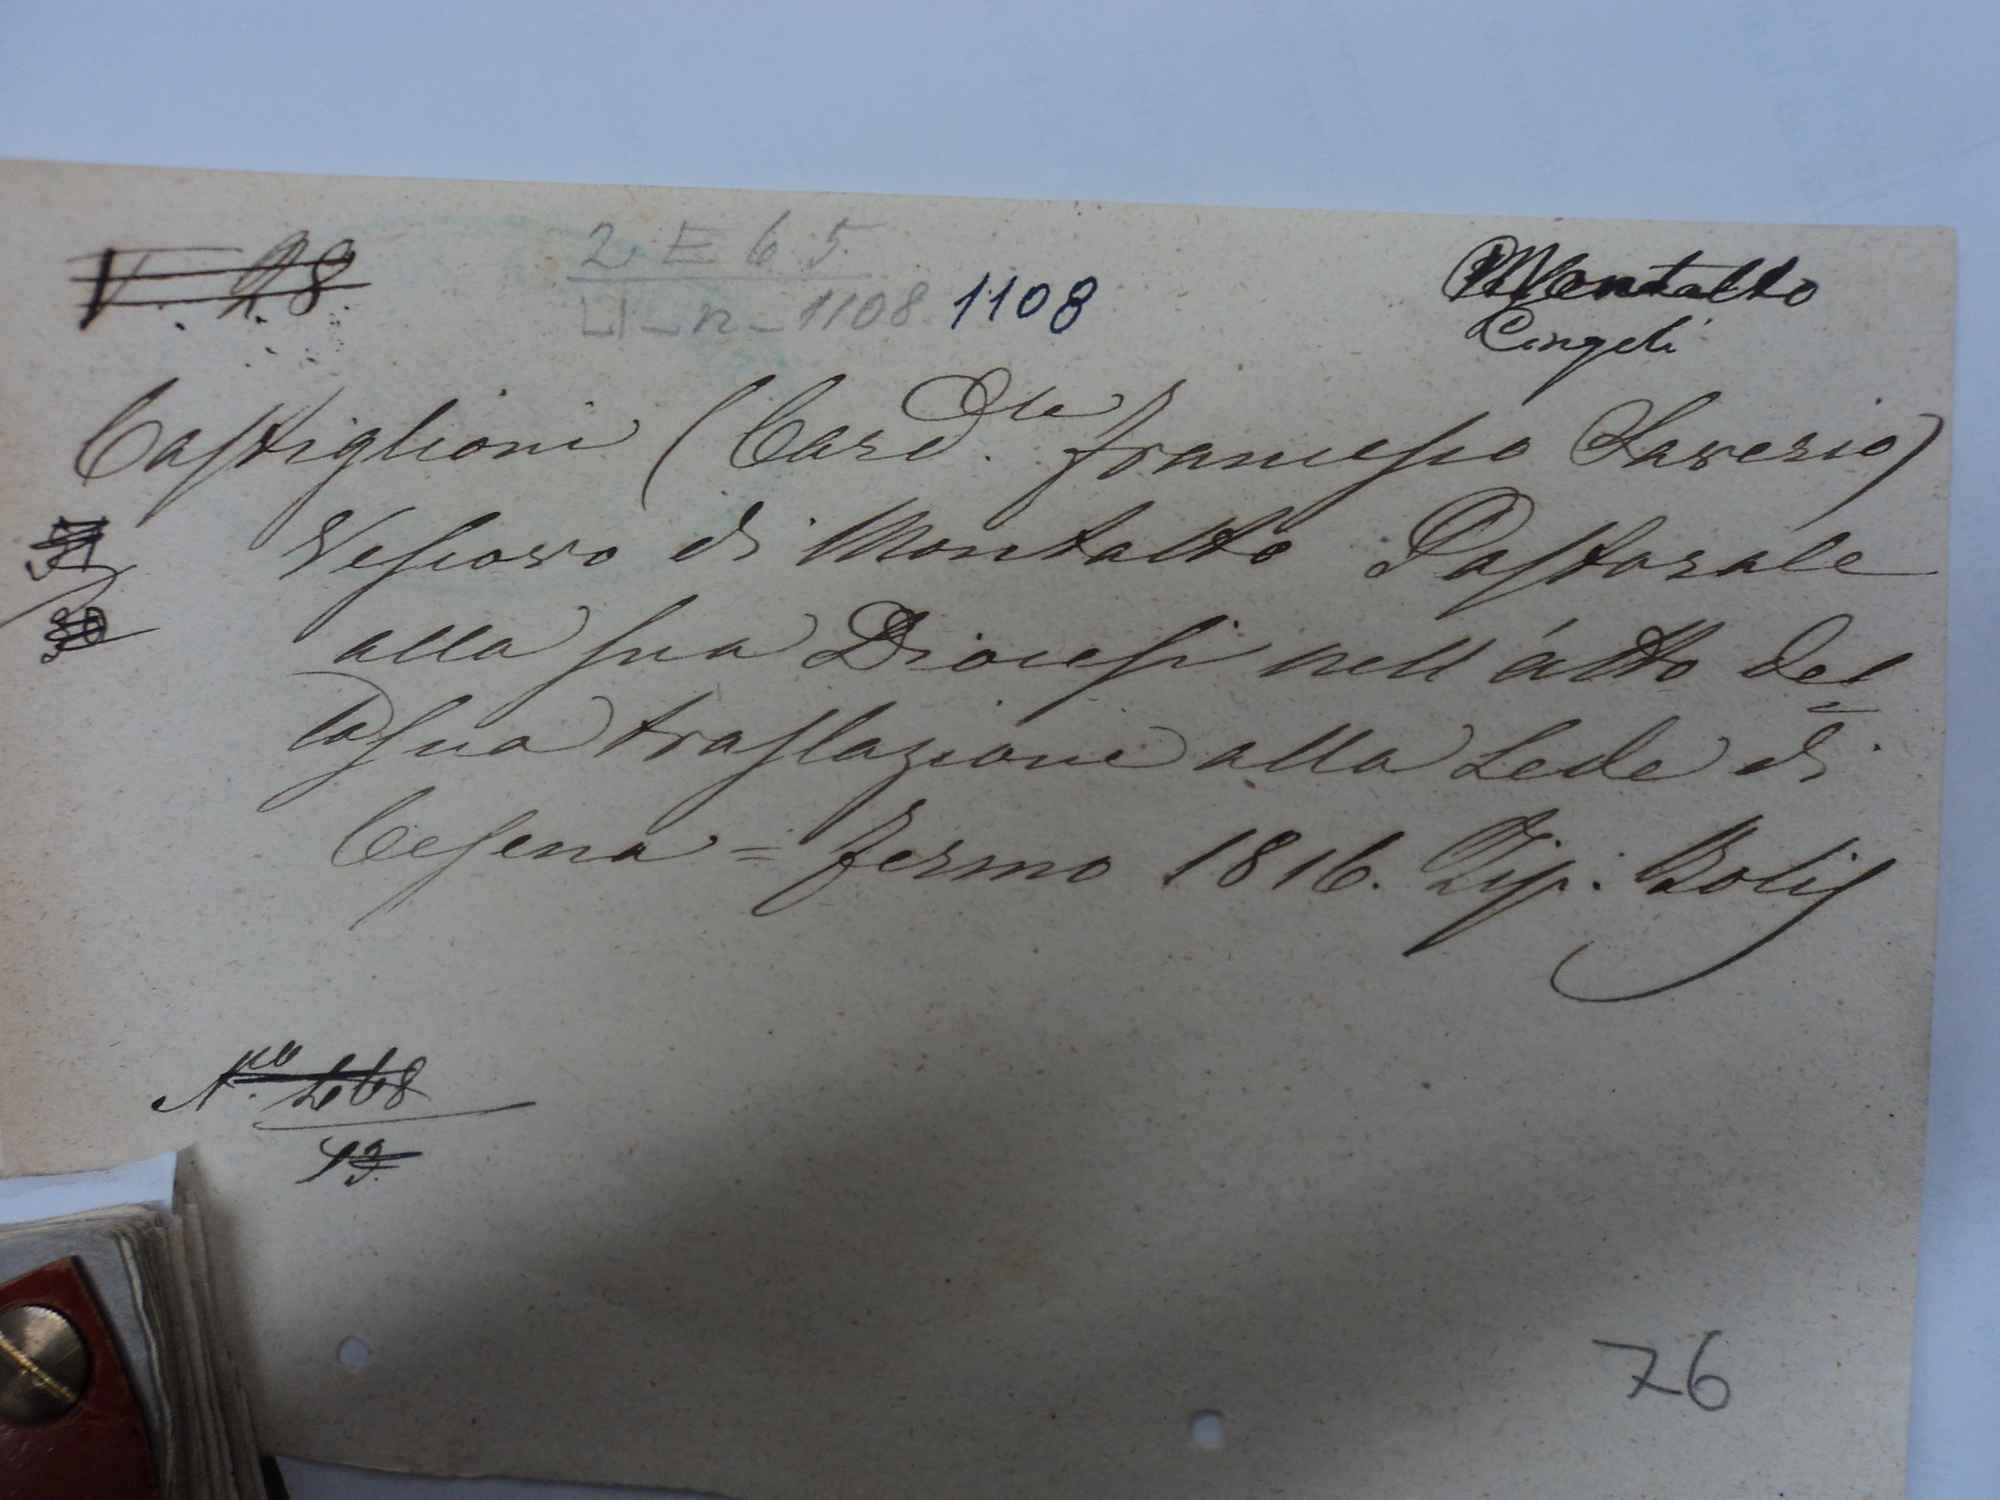 V. 28
2 E 65
LI - n - 1108 1108
Montalto
Cingoli
Castiglioni (Card.le Francesco Saverio)
Vescovo di Montalto Pastorale
alla sua Diocesi nell'atto del
la sua traslazione alla Sede di
Cesena = Fermo 1816. Tip: Bolis
N.ro 268
13.
76